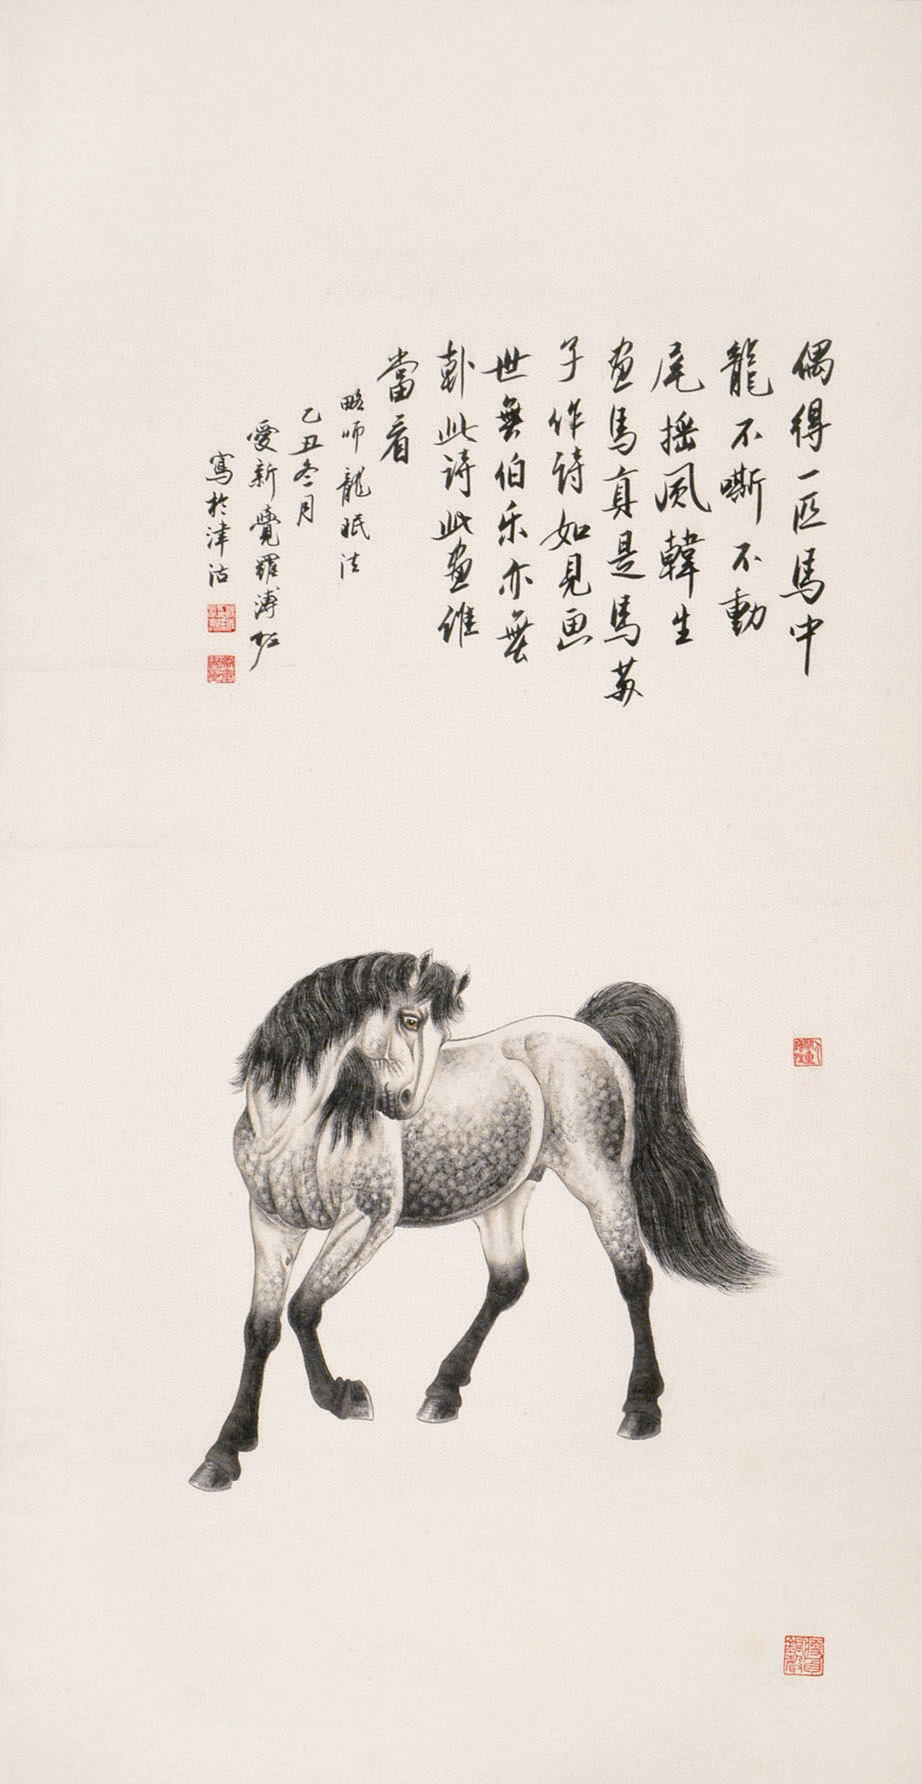 偶得一匹馬中
龍不嘶不動
尾摇風韓生
畫馬真是馬蘇
子作诗如見画
世無伯乐亦無
韩此诗此畫誰
當看
略师龍眠法
乙丑冬月
愛新覺羅溥佐
寫於津沽